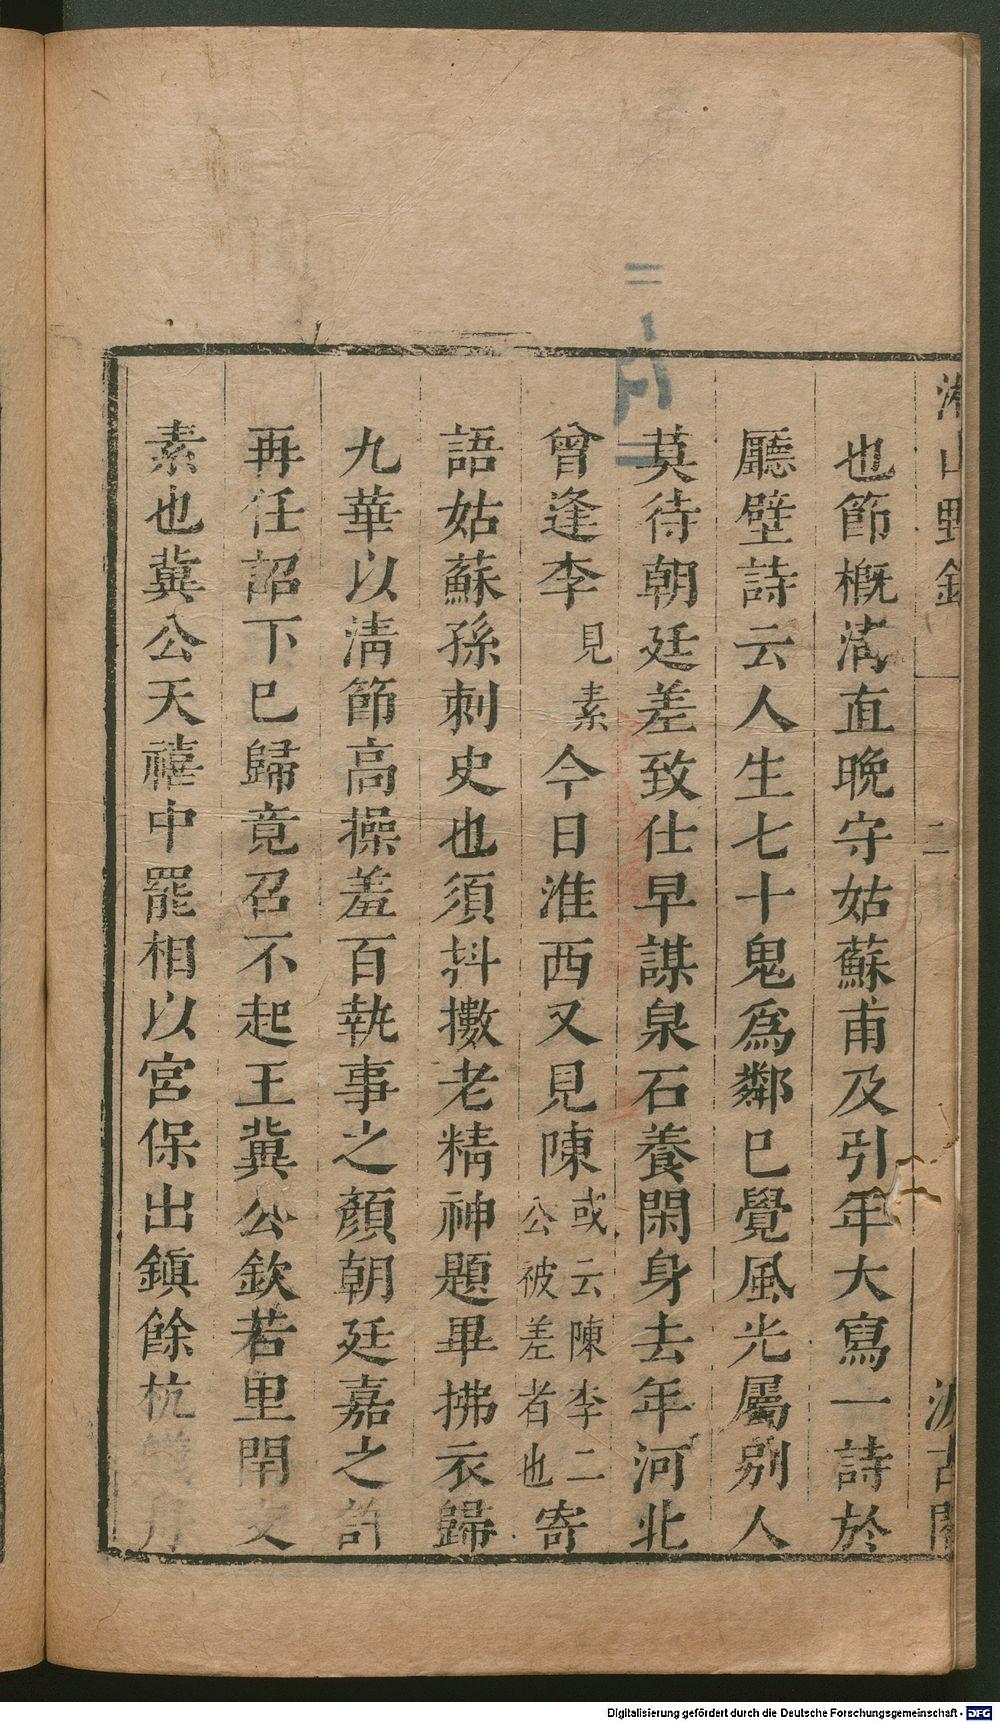 湘山野錄
二
汲古閣
也節概清直晚守姑蘇甫及引年大寫一詩於
廳壁詩云人生七十鬼為鄰巳覺風光屬別人
莫待朝廷差致仕早謀泉石養閑身去年河北
曾逢李見素今日淮西又見陳或云陳李二公被差者也寄
語姑蘇孫刺史也須抖擻老精神題畢拂衣歸
九華以清節高操羞百執事之顏朝廷嘉之許
再任詔下巳歸竟召不起王冀公欽若里閈交
素也冀公天禧中罷相以宮保出鎮餘杭
Digitalisierung gefördert durch die Deutsche Forschungsgemeinschaft - DFG